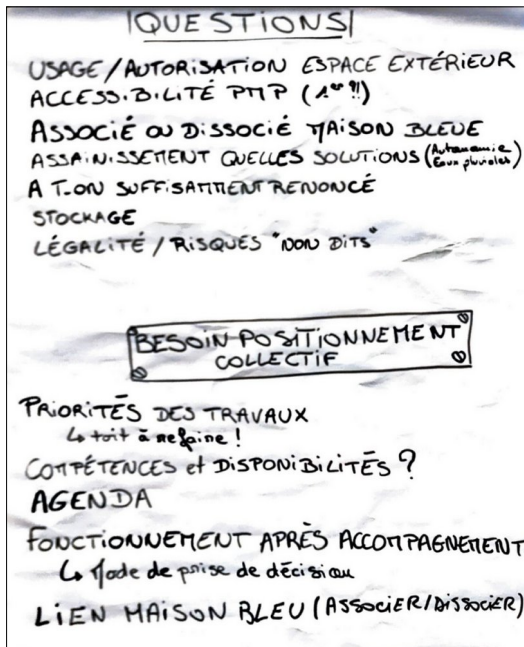 QUESTIONS
USAGE/AUTORISATION ESPACE EXTÉRIEUR
ACCESSIBILITÉ PMP (1er !!)
ASSOCIÉ OU DISSOCIÉ MAISON BLEUE
ASSAINISSEMENT QUELLES SOLUTIONS (Autonomie
Eaux pluviales)
A T-ON SUFFISAMMENT RENONCÉ
STOCKAGE
LÉGALITÉ / RISQUES "NON DITS"
BESOIN POSITIONNEMENT
COLLECTIF
PRIORITÉS DES TRAVAUX
↳ toit à refaire !
COMPÉTENCES et DISPONIBILITÉS ?
AGENDA
FONCTIONNEMENT APRÈS ACCOMPAGNEMENT
↳ Mode de prise de décision
LIEN MAISON BLEU (ASSOCIER/DISSOCIER)